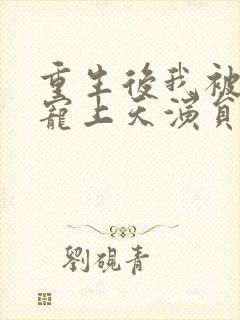 重生後我被
寵上天演員
劉硯青